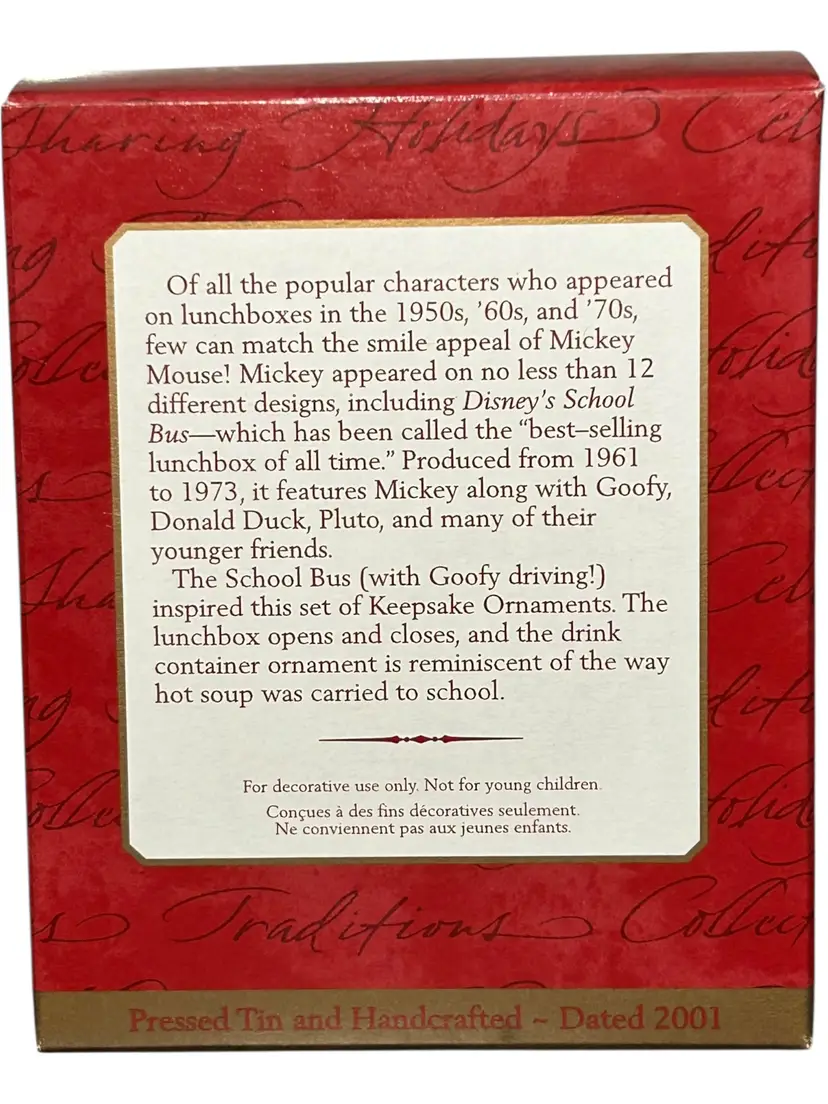 Sharing Holidays Cel
Of all the popular characters who appeared
on lunchboxes in the 1950s, ’60s, and ’70s,
few can match the smile appeal of Mickey
Mouse! Mickey appeared on no less than 12
different designs, including Disney’s School
Bus—which has been called the “best–selling
lunchbox of all time.” Produced from 1961
to 1973, it features Mickey along with Goofy,
Donald Duck, Pluto, and many of their
younger friends.
The School Bus (with Goofy driving!)
inspired this set of Keepsake Ornaments. The
lunchbox opens and closes, and the drink
container ornament is reminiscent of the way
hot soup was carried to school.
For decorative use only. Not for young children.
Conçues à des fins décoratives seulement.
Ne conviennent pas aux jeunes enfants.
Traditions Collect
Pressed Tin and Handcrafted ~ Dated 2001